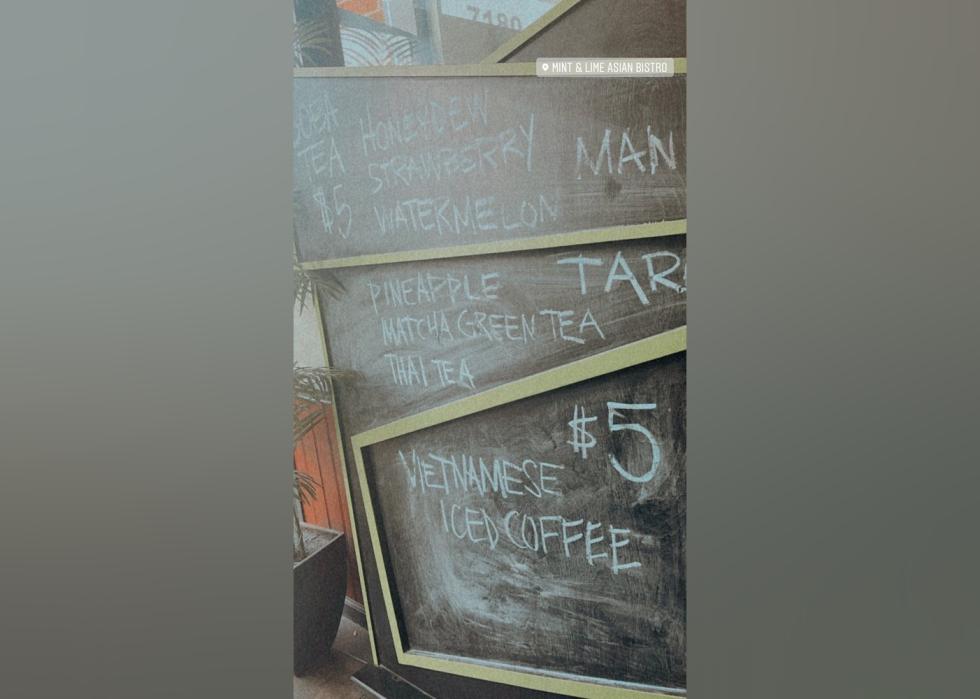 7180
MINT & LIME ASIAN BISTRO
TEA
$5
HONEYDEW
STRAWBERRY
WATERMELON
MAN
PINEAPPLE
MATCHA GREEN TEA
THAI TEA
TAR
$5
VIETNAMESE
ICED COFFEE